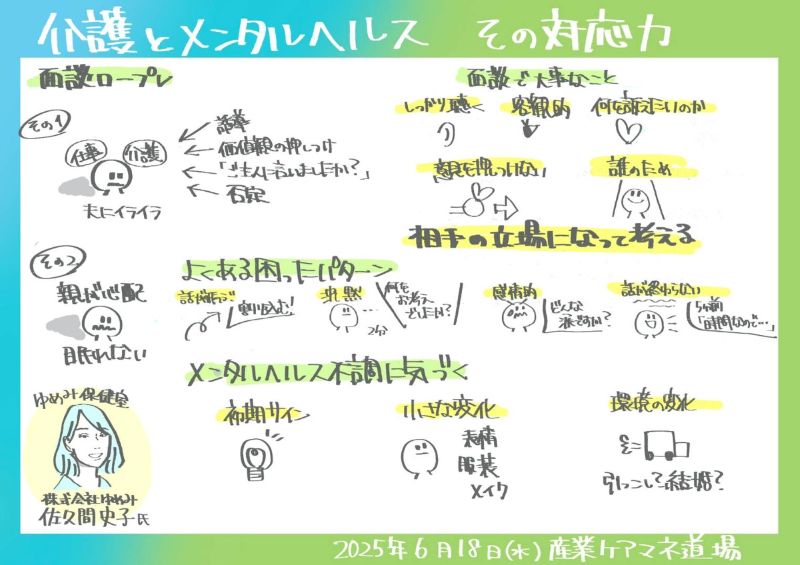 介護とメンタルヘルス その対応力
面談ロープレ
その1
仕事
介護
夫にイライラ
話率
価値観の押しつけ
「ご主人に言いましたか?」
否定
その2
親が心配
眠れない
面談で大事なこと
しっかり聴く
客観的
何を訴えたいのか
意見を押しつけない
誰のため
相手の立場になって考える
よくある困ったパターン
話が飛ぶ
割り込む!
沈黙
2分
何を
お考え
でしたか?
感情的
どんな
涙ですか?
話が終わらない
5分前
「時間なので…」
メンタルヘルス不調に気づく
初期サイン
小さな変化
表情
服装
メイク
環境の変化
引っこし? 結婚?
ゆめみ保健室
株式会社ゆめみ
佐久間史子氏
2025年6月18日(水) 産業ケアマネ道場